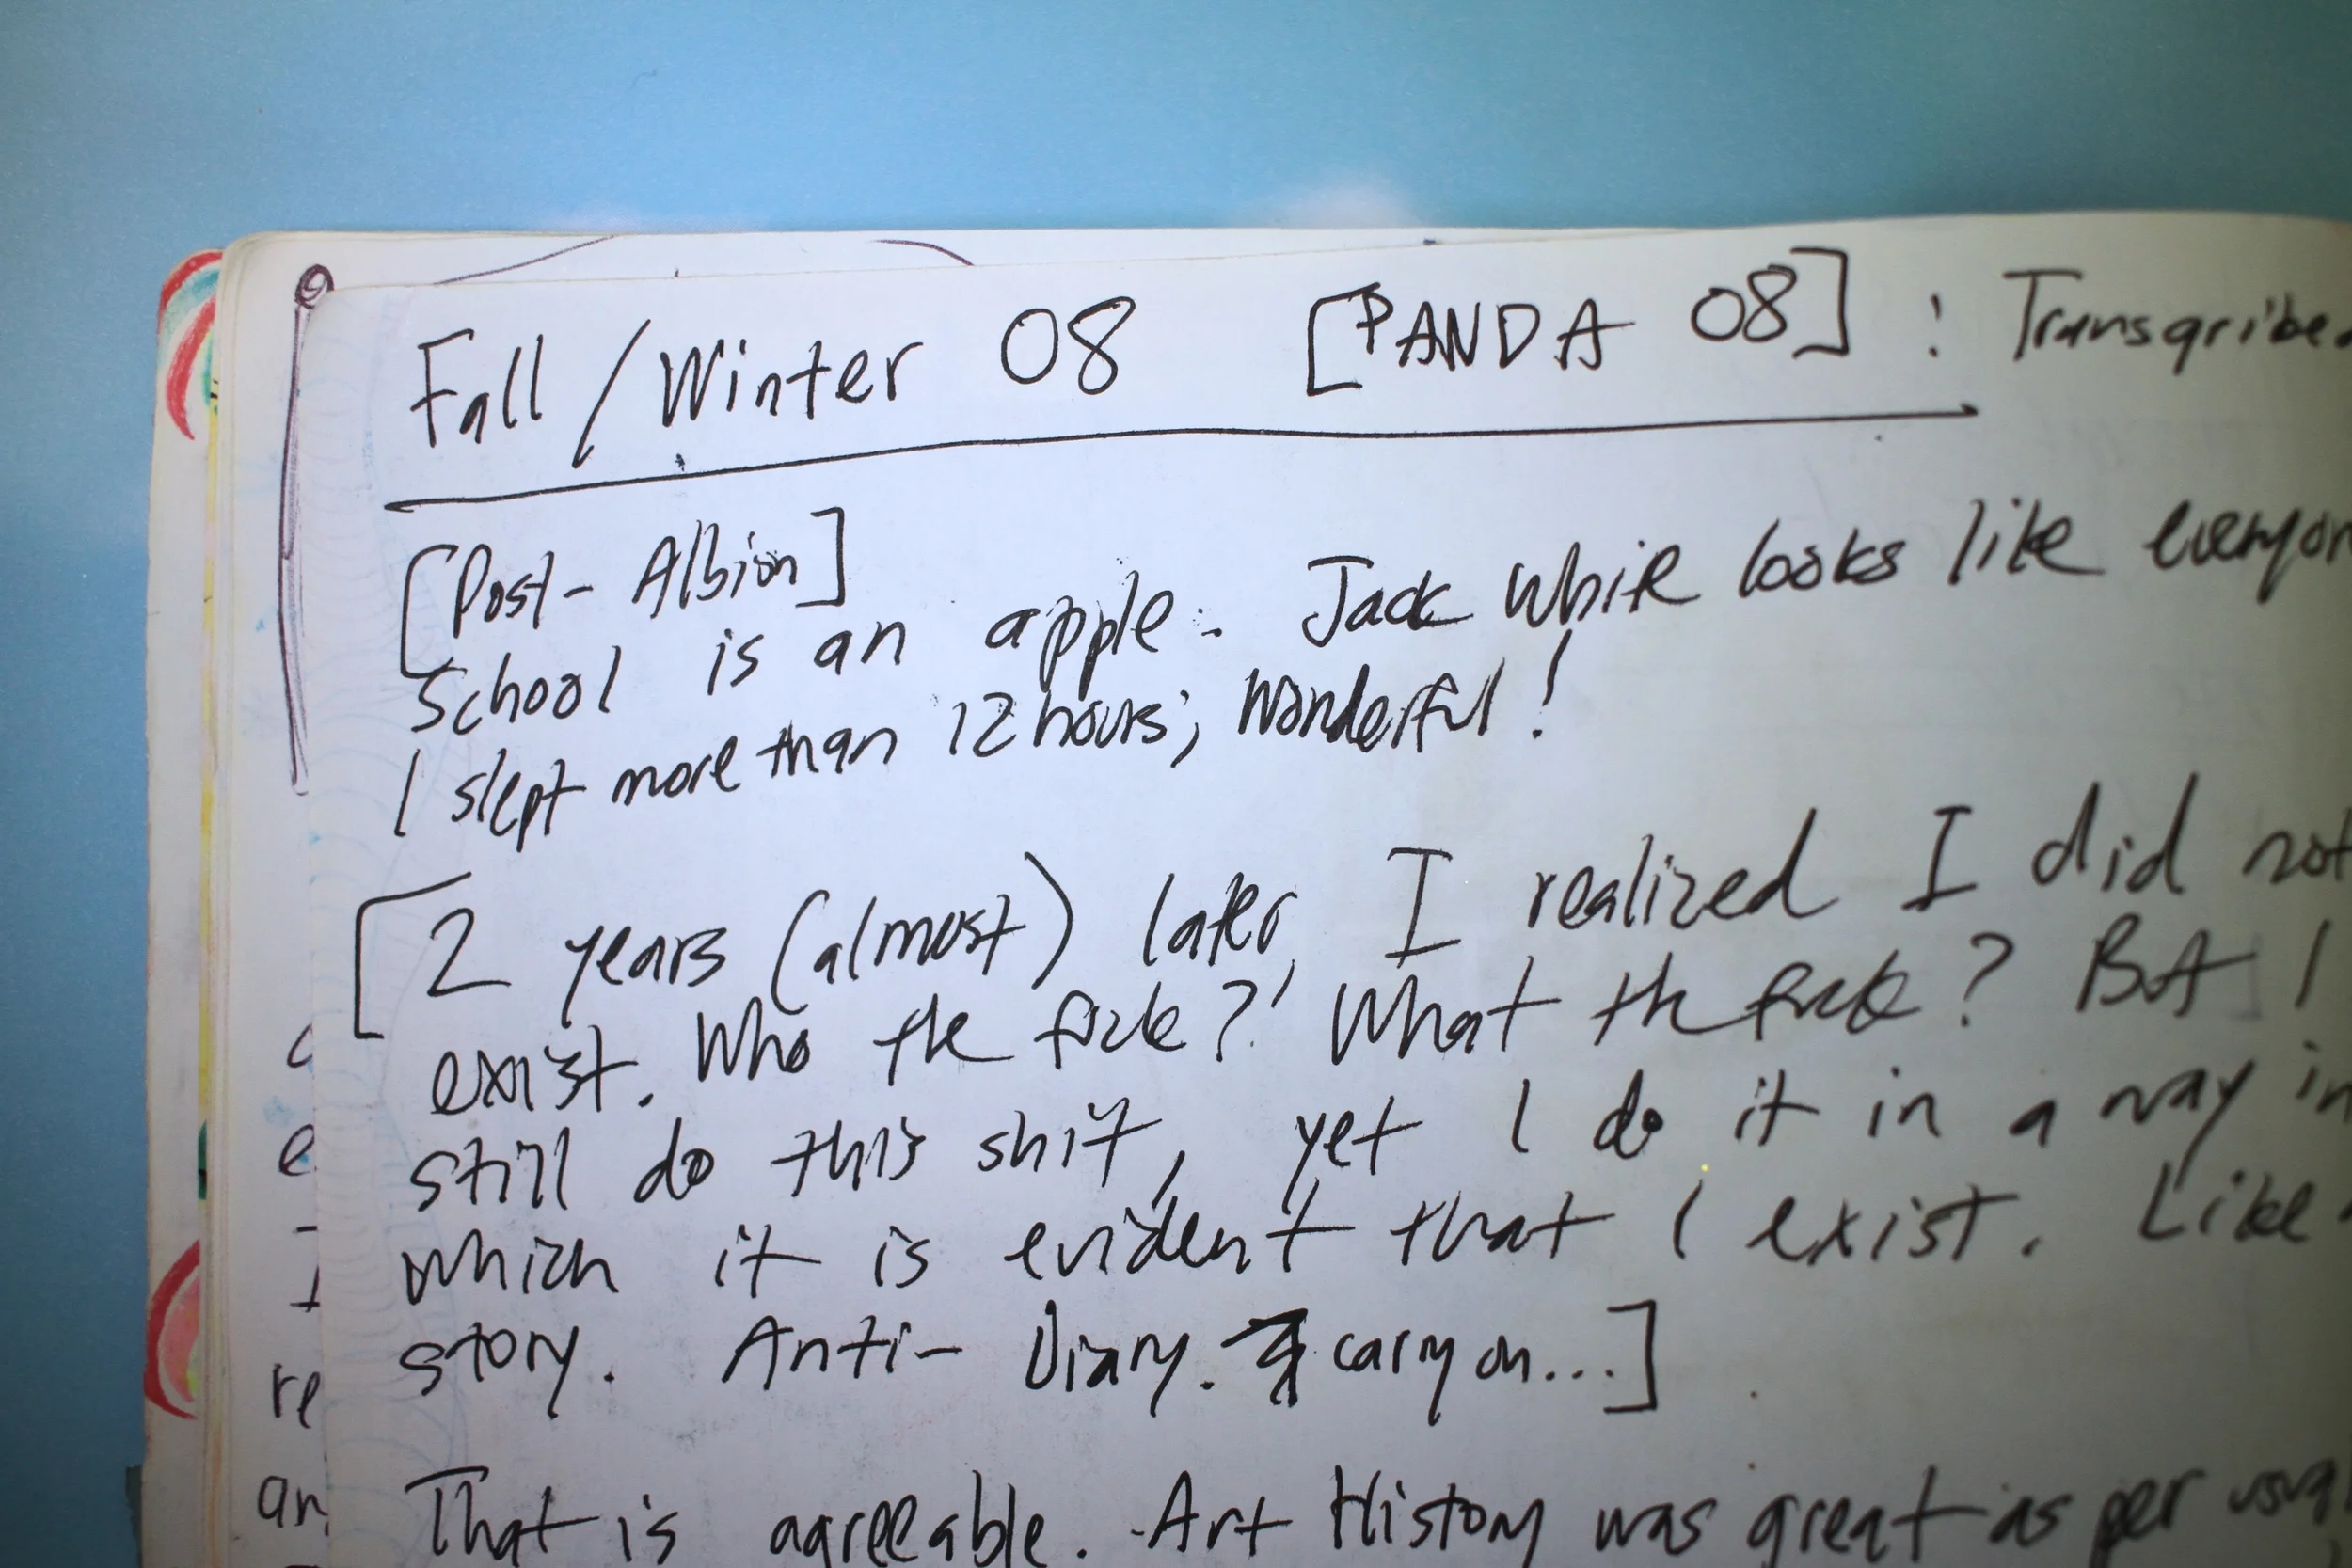 Fall / Winter 08 [PANDA 08] : Transqribe
[Post- Albion]
School is an apple. Jack White looks like everyon
I slept more than 12 hours; Wonderful!
[2 years (almost) later, I realized I did not
exist. Who the fuck? What the fuck? But I
still do this shit, yet I do it in a way in
which it is evident that I exist. Like
story. Anti- Diary. carry on...]
That is agreeable. Art History was great as per usua
c
e
I
re
an